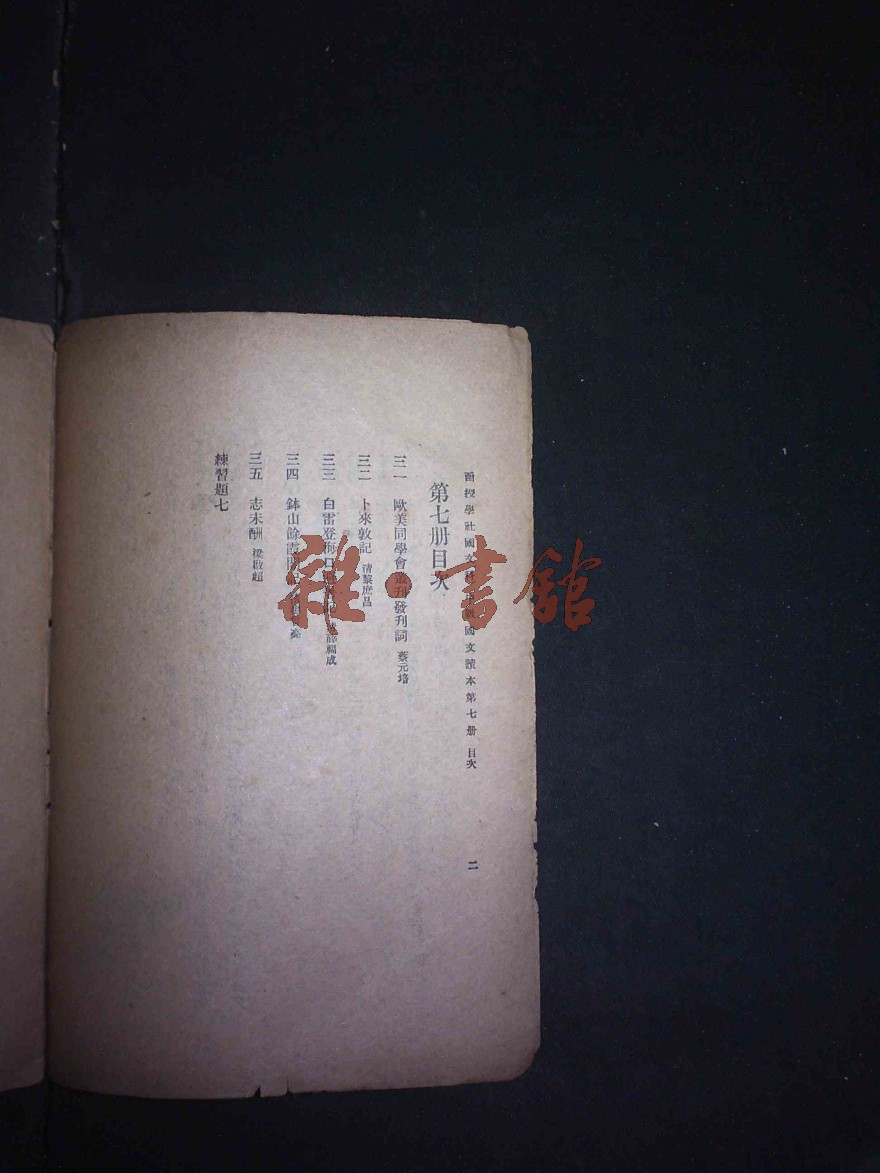 函授學社國文科 國文讀本第七册 目次
二
第七册目次
三一 歐美同學會叢刊發刊詞 蔡元培
三二 卜來敦記 清黎庶昌
三三 白雷登海口 薛福成
三四 鉢山餘霞閣記
三五 志未酬 梁啟超
練習題七
雜·書館